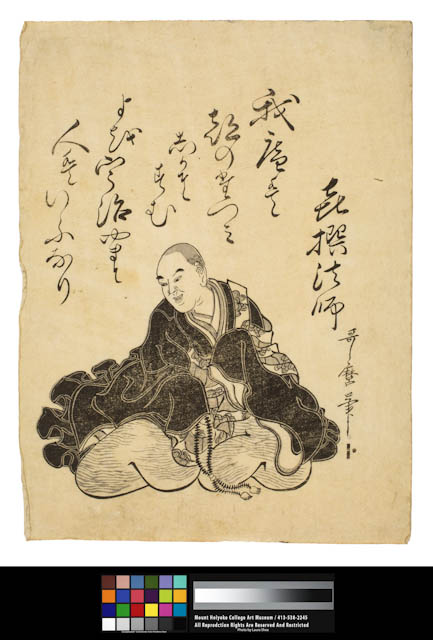 喜撰法師
哥麿筆
我庵は
都のたつみ
しかそ
すむ
よを宇治山と
人はいふなり
Mount Holyoke College Art Museum / 413-538-2245
All Reprodction Rights Are Reserved And Restricted
Photo by Laura Shea